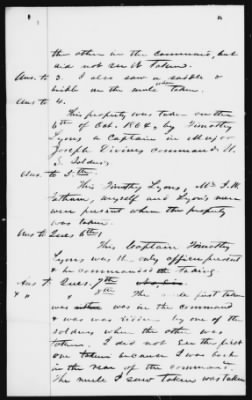 the other in the command, but
did not see it taken.
Ans. to 3. I also saw a saddle &
bridle on the mule taken.
Ans. to 4.
This property was taken on the
6th of Oct. 1864, by Timothy
Lyons a Captain in Major
Joseph Divines command U.
S. Soldiers.
Ans. to 5th.
This Timothy Lyons, Mr.
myself and Lyons men
were present when the property
was taken.
Ans to Ques 6th,
This Captain Timothy
Lyons was the only officer present
& he commanded the taking.
Ans to Ques. 7th
" " " 8th The first taken
was was in the command
& was was ridden by one of the
soldiers when the other was
taken. I did not see the first
one taken because I was back
in the rear of the command.
The mule I saw taken was taken